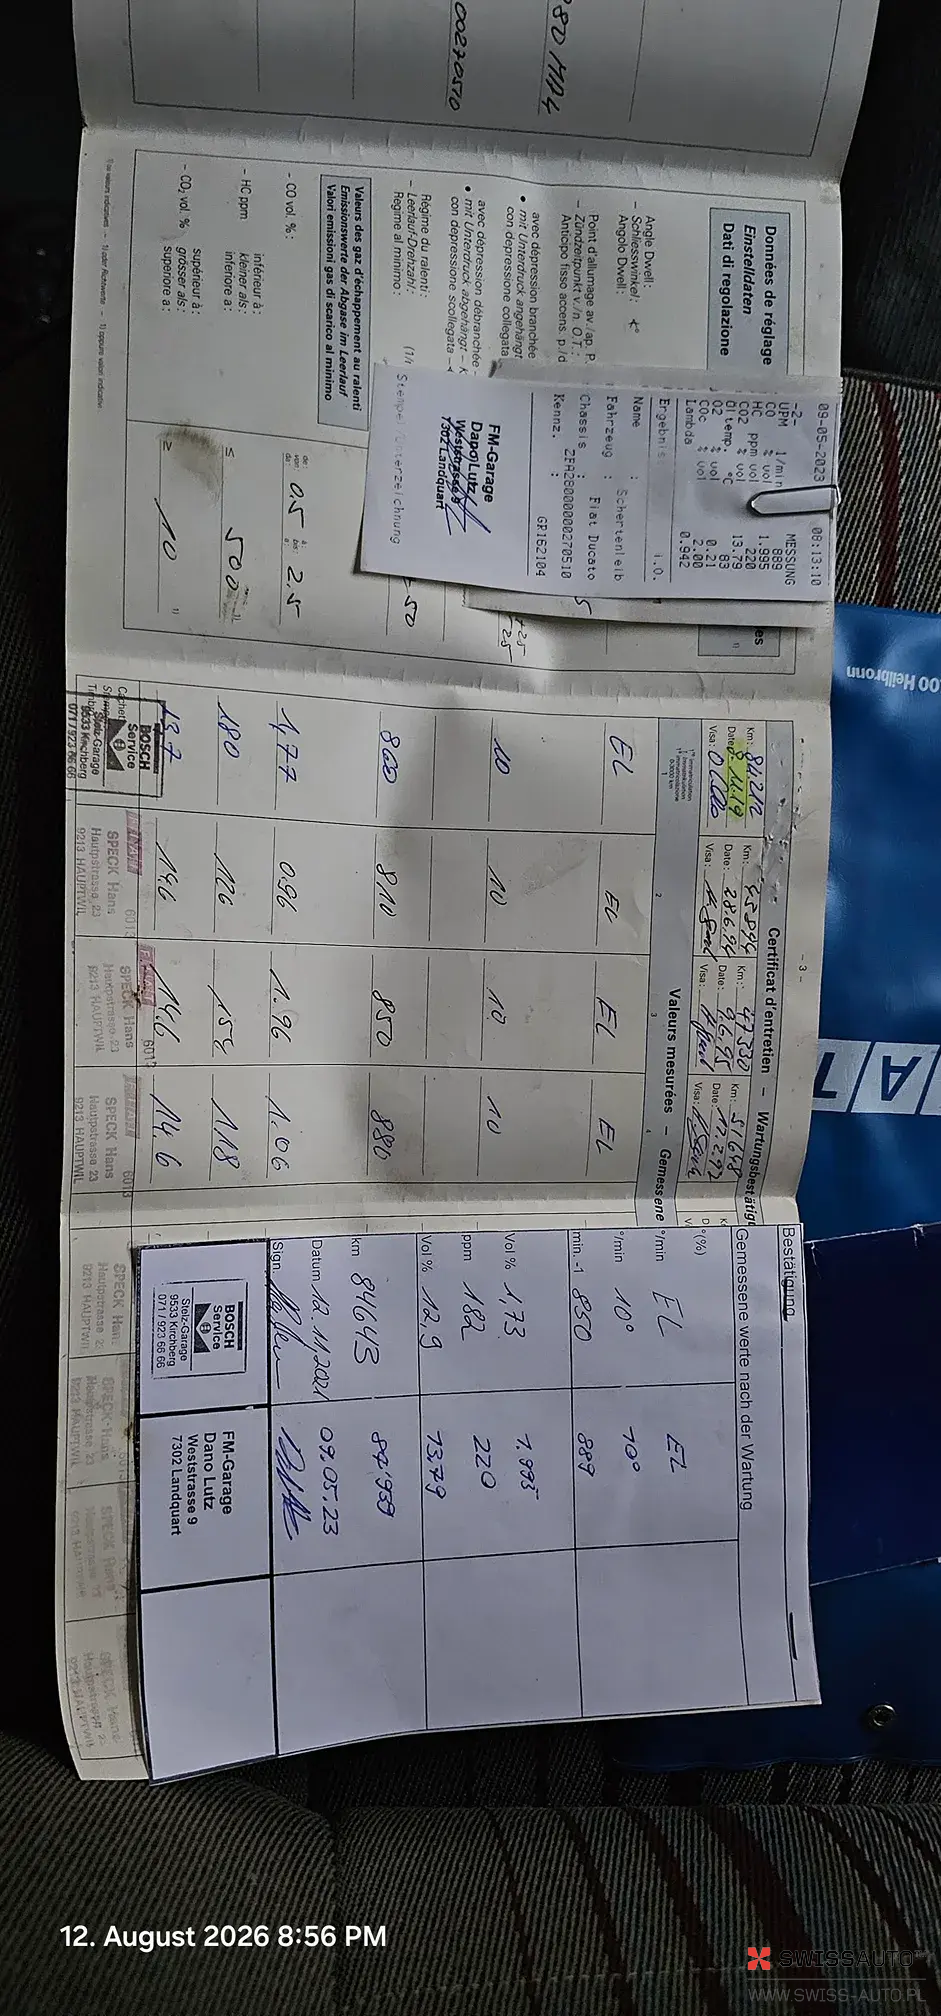 8D M24
00270570
Données de réglage
Einstelldaten
Dati di regolazione
Angle Dwell:
– Schliesswinkel:
Angolo Dwell:
Point d'allumage av./ap. P.
– Zündzeitpunkt v./n. O.T.:
Anticipo fisso accens. p./d
avec dépression branchée
• mit Unterdruck angehängt
con depressione collegata
avec dépression débranchée
• mit Unterdruck abgehängt
con depressione scollegata
Régime du ralenti:
– Leerlauf-Drehzahl:
Regime al minimo:
Valeurs des gaz d'échappement au ralenti
Emissionswerte der Abgase im Leerlauf
Valori emissioni gas di scarico al minimo
– CO vol. %:
0.5
2.5
inférieur à:
– HC ppm kleiner als:
inferiore a:
≤ 500
supérieur à:
– CO₂ vol. % grösser als:
superiore a:
≥ 10
1) ou valeurs indicatives – 1) oder Richtwerte – 1) oppure valori indicative
09-05-2023 08:13:10
-2- MESSUNG
UPM 1/min 889
CO % vol 1.995
HC ppm vol 220
CO2 % vol 13.79
Öltemp. °C 83
O2 % vol 0.21
COc % vol 2.00
Lambda 0.942
Ergebnis i.O.
Name : Schertenleib
Fahrzeug : Fiat Ducato
Chassis :
ZFA28000000270510
Kennz. : GR162104
FM-Garage
Dano Lutz
Weststrasse 9
7302 Landquart
Stempel/Unterzeichnung
- 3 -
Certificat d'entretien – Wartungsbestätig
Km: 84212
Date: 8.11.19
Visa:
Km:
Date: 28.6.94
Visa:
Km: 47330
Date: 9.6.95
Visa:
Km: 51648
Date: 17.2.97
Visa:
Valeurs mesurées – Gemessene
EL EL EL EL
10 10 10 10
800 810 850 880
1,77 0.96 1.96 1.06
180 126 158 118
13,7 14.6 14.6 14.6
BOSCH
Service
Stelz-Garage
9533 Kirchberg
071 / 923 66 66
SPECK Hans
Hauptstrasse 23
9213 HAUPTWIL
SPECK Hans
Hauptstrasse 23
9213 HAUPTWIL
SPECK Hans
Hauptstrasse 23
9213 HAUPTWIL
Bestätigung
Gemessene werte nach der Wartung
°(%)
°/min EL EL
°/min 10° 10°
min.-1 850 889
Vol % 1,73 1.995
ppm 182 220
Vol % 12,9 13.79
km 84643 84'939
Datum 12.11.2021 09.05.23
Sign.
BOSCH
Service
Stelz-Garage
9533 Kirchberg
071 / 923 66 66
FM-Garage
Dano Lutz
Weststrasse 9
7302 Landquart
00 Heilbronn
12. August 2026 8:56 PM
SWISSAUTO
WWW.SWISS-AUTO.PL